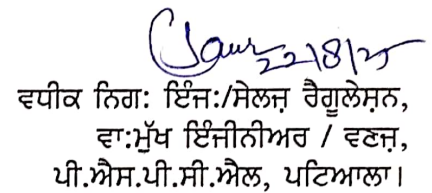 22/8/25
ਵਧੀਕ ਨਿਗ: ਇੰਜ:/ਸੇਲਜ਼ ਰੈਗੂਲੇਸ਼ਨ,
ਵਾ:ਮੁੱਖ ਇੰਜੀਨੀਅਰ / ਵਣਜ਼,
ਪੀ.ਐਸ.ਪੀ.ਸੀ.ਐਲ, ਪਟਿਆਲਾ।